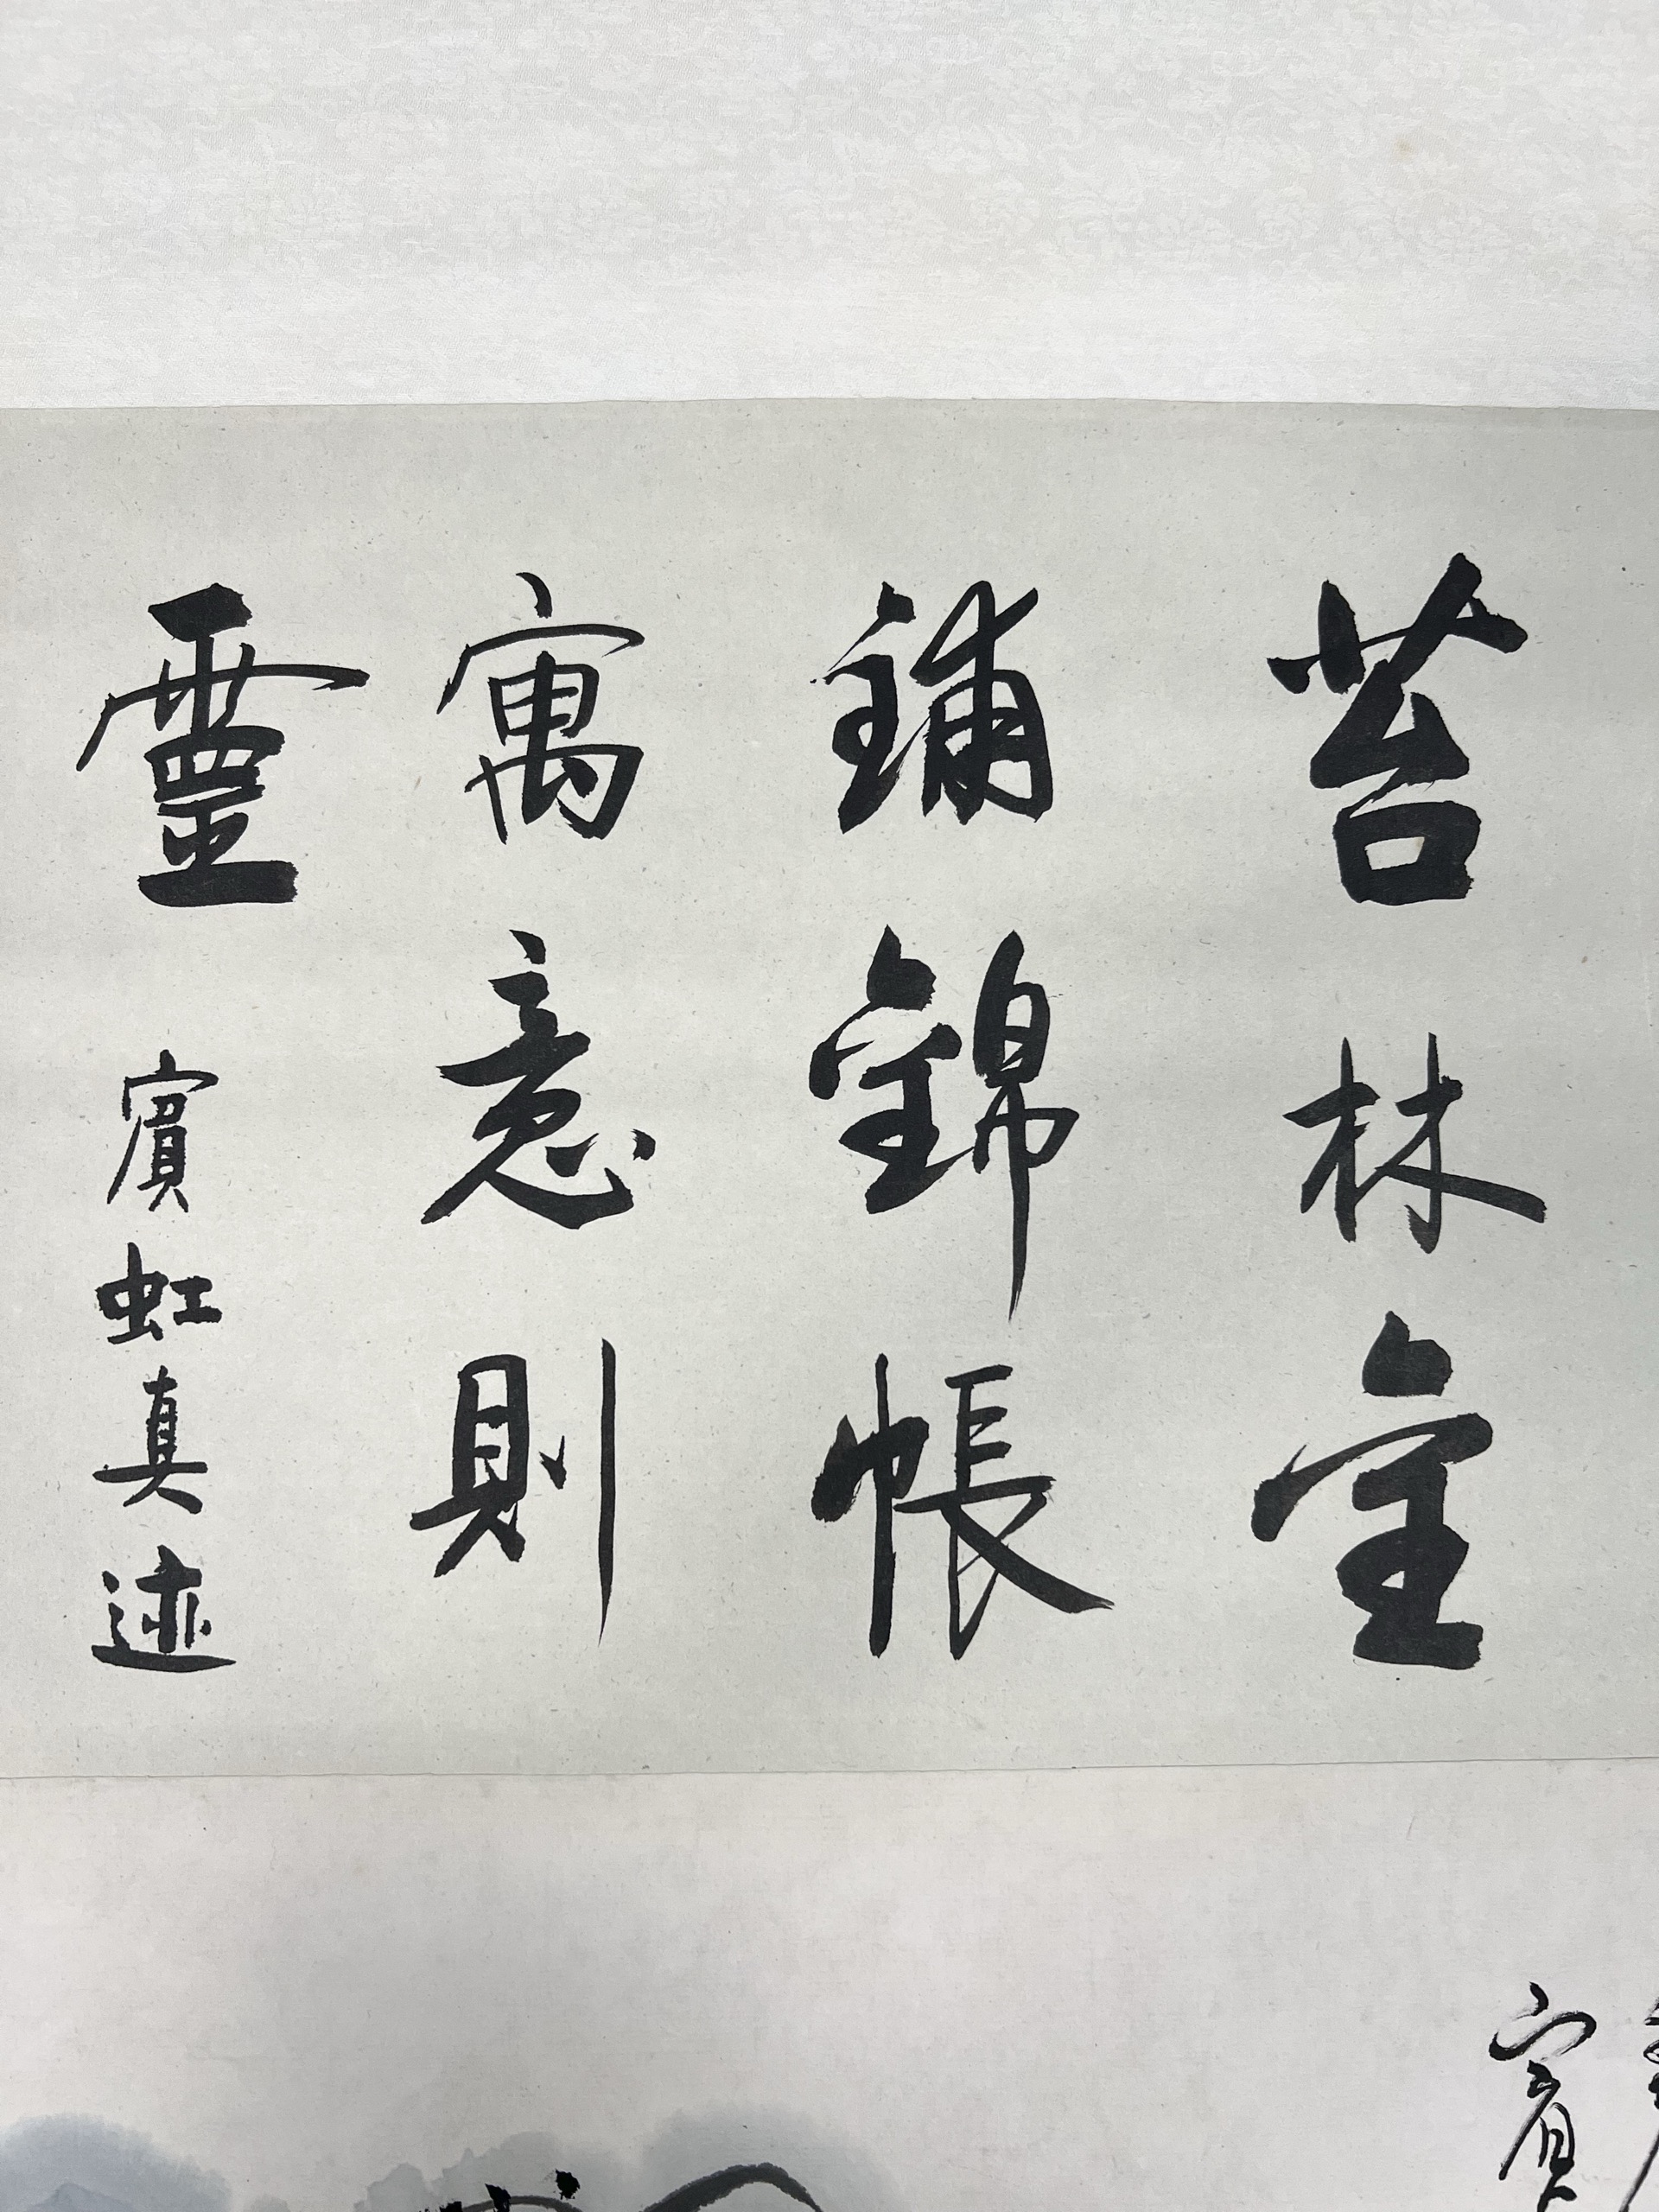 苔林金
鋪錦帳
寓意則
靈 賓虹真迹
賓